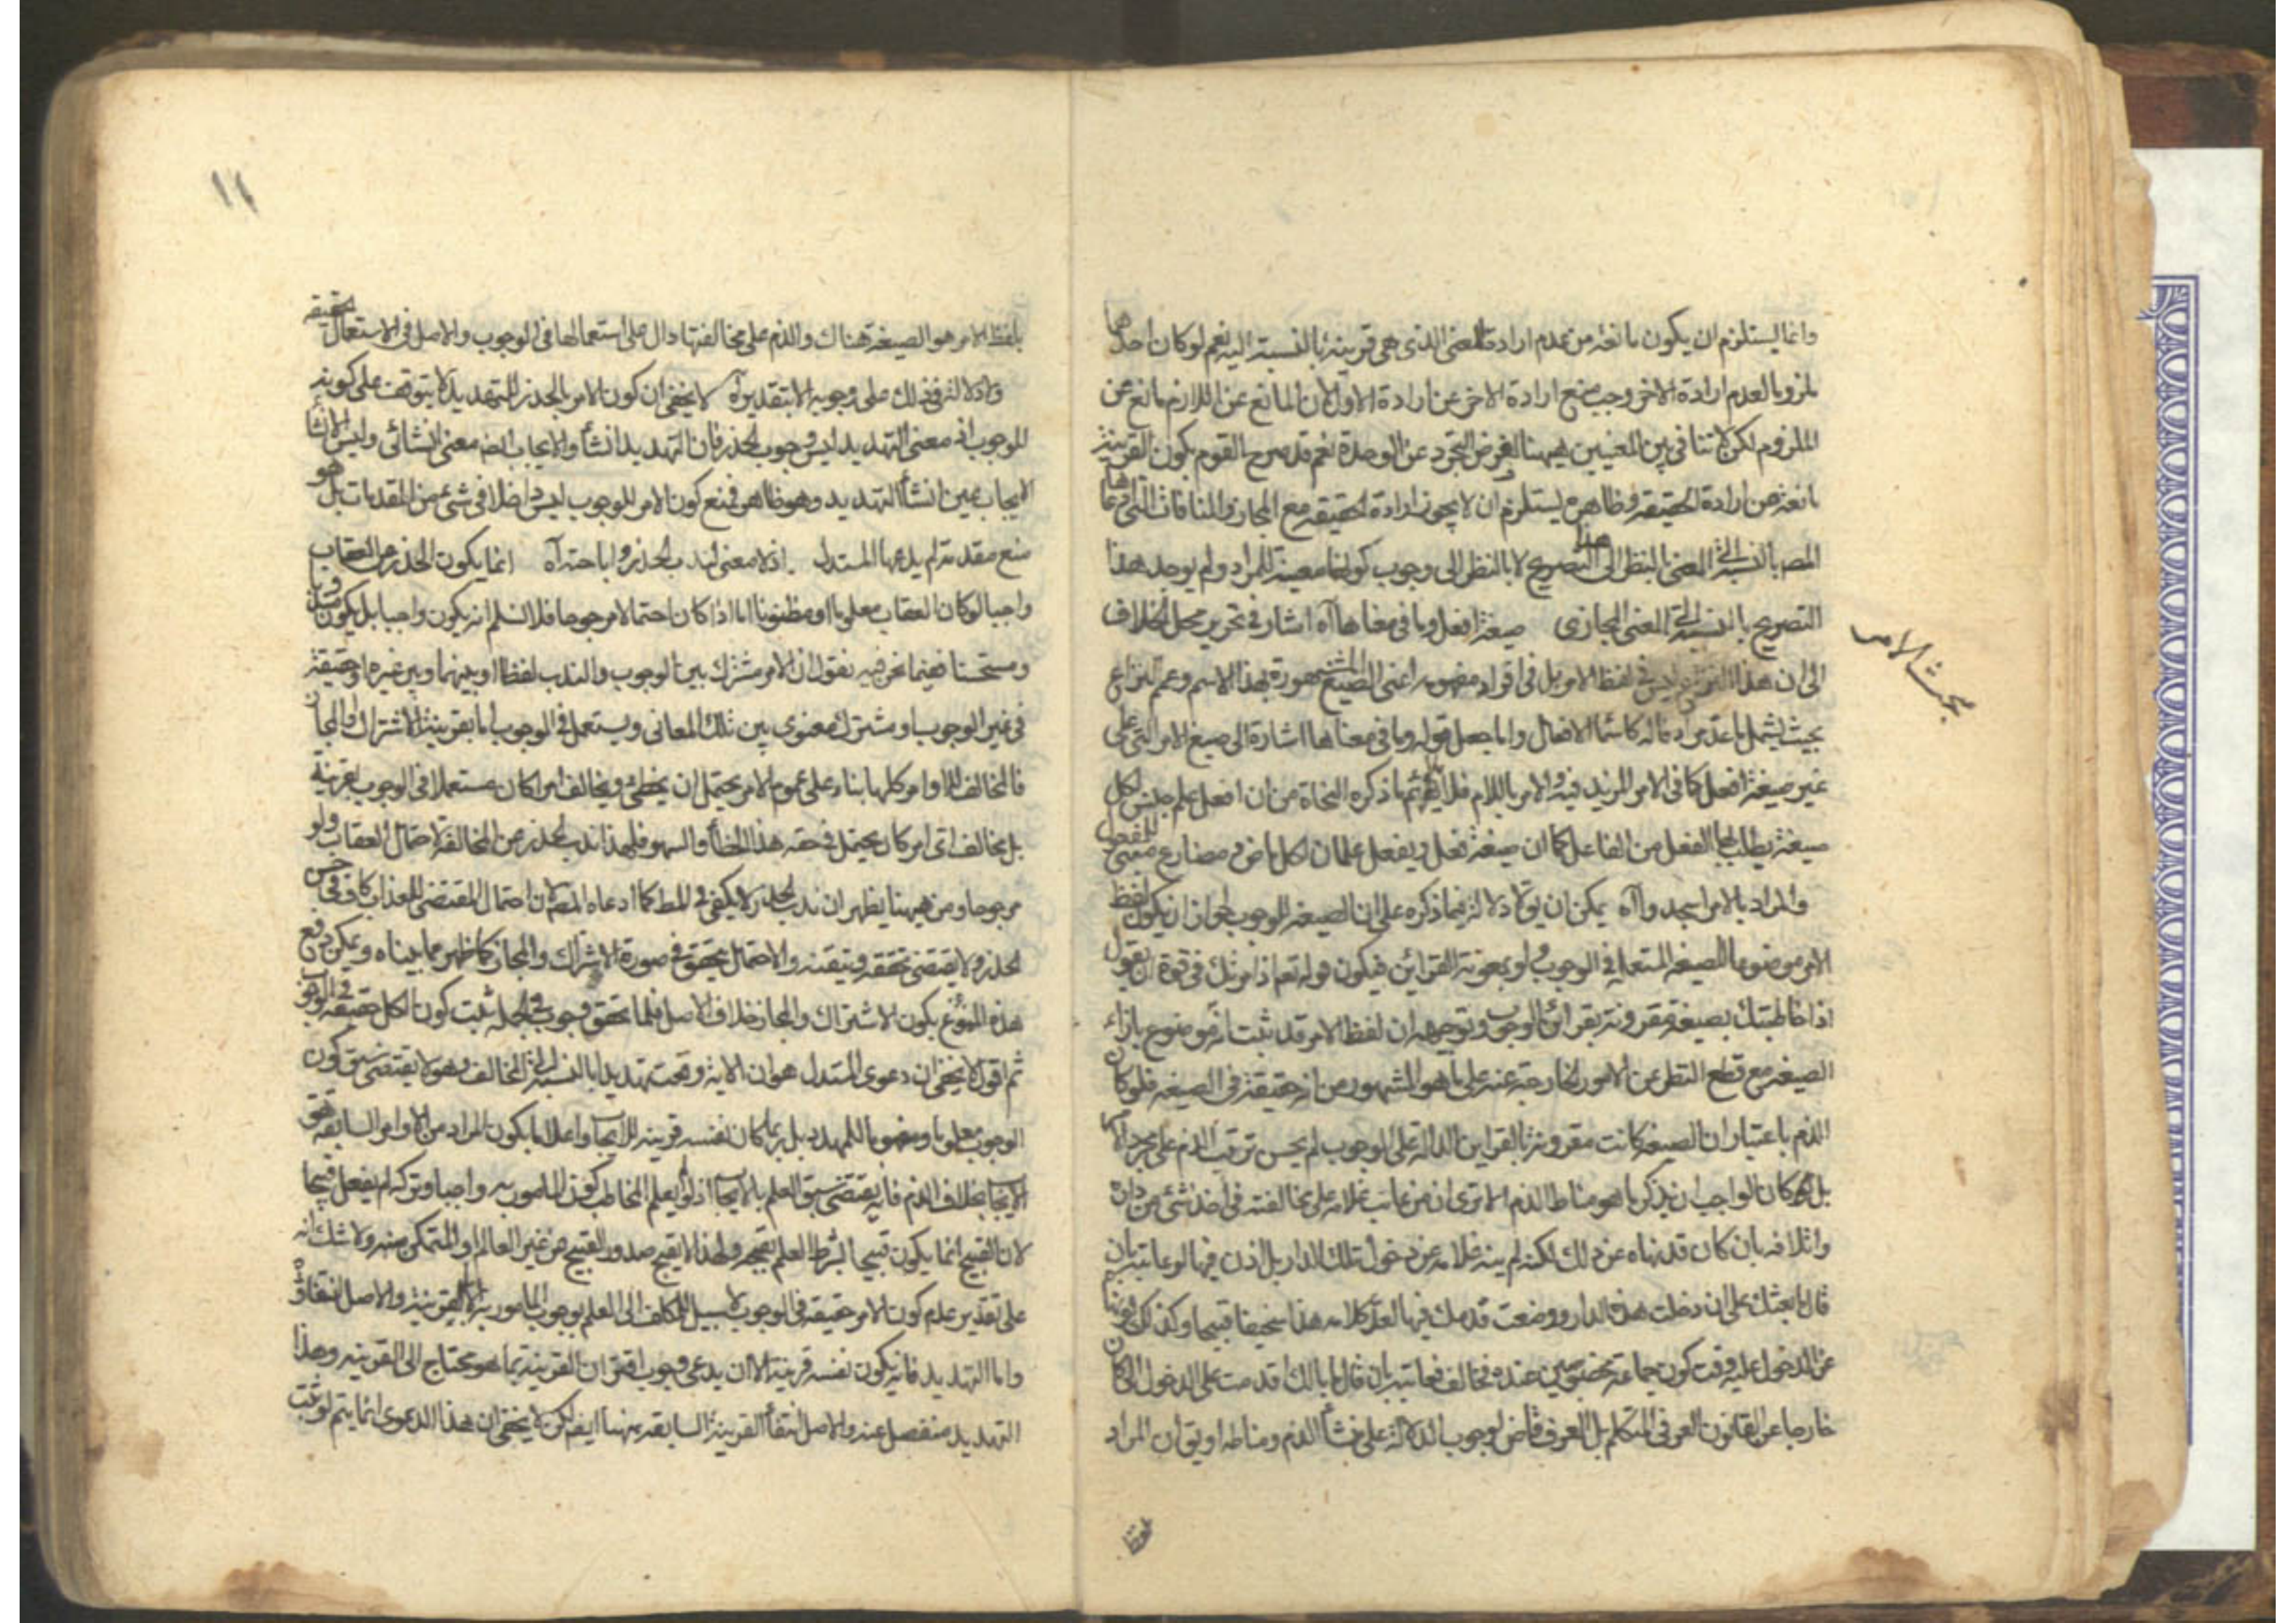 وانما يستلزم ان يكون مانعة من عدم ارادة المعنى الذى هى قرينة بالنسبة اليه نعم لو كان احدهما
ملزوما لعدم ارادة الاخر وجب منع ارادة الاخر عن ارادة الاول لان المانع عن اللازم مانع عن
الملزوم لكن لا تنافى بين المعنيين ههنا لفرض التجرد عن الوحدة نعم قد صرح القوم بكون القرينة
مانعة من ارادة الحقيقة وظاهره يستلزم ان لا يجوز ارادة الحقيقة مع المجاز والمنافاة التى ادعاها
المصه بالنسبة الى المعنى بالنظر الى هذا التصريح لا بالنظر الى وجوب كونها معينة للمراد ولم يوجد هذا
التصريح بالنسبة الى المعنى المجازى صيغة افعل وما فى معناها آه اشار فى تحرير محل الخلاف
بحث الامر
الى ان هذا النزاع ليس فى لفظ الامر بل فى افراد مفهومه اعنى الصيغ المشهورة بهذا الاسم وعمم النزاع
بحيث يشمل ما عد مرادفا له كاسماء الافعال واما جعل قوله وما فى معناها اشارة الى صيغ الامر التى على
غير صيغة افعل كما فى الامر المزيد فيه والامر باللام فلا يلائم ما ذكره النحاة من ان افعل علم جنس لكل
صيغة يطلب بها الفعل من الفاعل كما ان صيغة فعل ويفعل علمان لكل ماض ومضارع معنى للمفعول
والمراد بالامر اسجدوا آه يمكن ان يق لا دلالة فيما ذكره على ان الصيغة للوجوب لجواز ان يكون لفظ
الامر موضوعا للصيغة المستعملة فى الوجوب ولو بمعونة القرائن فيكون قوله تعم اذ امرتك فى قوة ان يقول
اذ خاطبتك بصيغة مقرونة بقرائن الوجوب وتوجيهه ان لفظ الامر قد ثبت انه موضوع بازاء
الصيغة مع قطع النظر عن الامور الخارجة عنه على ما هو المشهور من انه حقيقة فى الصيغة فلو كان
الذم باعتبار ان الصيغة كانت مقرونة بالقراين الدالة على الوجوب لم يحسن ترتيب الذم على مجرد الامر
بل كان الواجب ان يذكر ما هو مناط الذم الا ترى ان من عاتب غلامه على مخالفته فى اخذ شئ من داره
واتلافه بان كان قد نهاه عن ذلك لكنه لم ينه غلامه عن دخول تلك الدار بل اذن فيها لو عاتبه بان
قال ما بعثك على ان دخلت هذه الدار ووضعت قدمك فيها لعد كلامه هذا سخيفا قبيحا وكذلك لو نهاه
عن الدخول عليه وقت كون جماعة مخصوصين عنده فخالف فعاتبه بان قال ما بالك اقدمت على الدخول الى كان
خارجا عن القانون العرفى المتكلم بل العرف قاض لوجوب الدلالة على منشأ الذم ومناطه او يق ان المراد
بلفظ
١٤
بلفظ الامر هو الصيغة هناك والذم على مخالفتها دال على استعمالها فى الوجوب والاصل فى الاستعمال الحقيقة
ولا دلالة فى ذلك على وجوبه الا بتقدير آه لا يخفى ان كون الامر بالحذر للتهديد لا يتوقف على كونه
للوجوب اذ معنى التهديد ليس وجوب الحذر فان التهديد انشاء والايجاب ايضه معنى انشائى وليس الانشاء
الايجاب عين انشاء التهديد وهو ظاهر فمنع كون الامر للوجوب ليس داخلا فى شئ من المقدمات بل هو
منع مقدمة لم يدعها المستدل اذ لا معنى لندب الحذر واباحته آه انما يكون الحذر من العقاب
واجبا لو كان العقاب معلوما او مظنونا اما اذا كان احتمالا مرجوحا فلا نسلم انه يكون واجبا بل يكون مندوبا
ومستحسنا فيما نحن فيه نقول ان الامر مشترك بين الوجوب والندب لفظا او بينهما وبين غيرها او حقيقة
فى غير الوجوب او مشترك معنوى بين تلك المعانى ويستعمل فى الوجوب اما بقرينة الاشتراك او المجاز
فالمخالف للاوامر كلها بناء على عموم الامر يحتمل ان يخطئ ويخالف امرا كان مستعملا فى الوجوب بقرينة
بل مخالف اى امر كان يحتمل فى حقه هذا الخطأ والسهو فلهذا ندب الحذر من المخالفة لاحتمال العقاب ولو
مرجوحا ومن ههنا يظهر ان ندب الحذر لا يكفى فى المط كما ادعاه المصه لان احتمال المقتضى للعذاب كاف فى حسن
الحذر ولا يقتضى تحققه وتيقنه والاحتمال يتحقق فى صورة الاشتراك والمجاز كما ظهر مما بيناه ويمكن دفع
هذه المنوع بكون الاشتراك والمجاز خلاف الاصل فلما تحقق وجوب فى الجملة ثبت كون الكل حقيقة فى الوجوب
ثم اقول لا يخفى ان دعوى المستدل هو ان الاية وقعت تهديدا بالنسبة الى المخالف وهو لا يقتضى سبق كون
الوجوب معلوما ومفهوما للمهدد بل ربما كان نفسه قرينة للايجاب واعلاما بكون المراد من الاوامر السابقة هو
الايجاب بخلاف الذم فانه يقتضى سبق العلم بالايجاب اذ لو لم يعلم المخاطب كون المامور به واجبا وتركه لم يفعل قبيحا
لان القبيح انما يكون قبيحا بشرط العلم بقبحه ولهذا لا يقبح صدور القبيح من غير العالم او المتمكن منه ولا شك انه
على تقدير عدم كون الامر حقيقة فى الوجوب لا سبيل للمكلف الى العلم بوجوب المامور به الا بالقرينة والاصل انتفاؤه
واما التهديد فانه يكون نفسه قرينة الا ان يدعى وجوب اقتران القرينة بما هو محتاج الى القرينه وهذا
التهديد منفصل عنه والاصل انتفاء القرينة السابقه ههنا ايضه لكن لا يخفى ان هذا الدعوى انما يتم لو ثبت